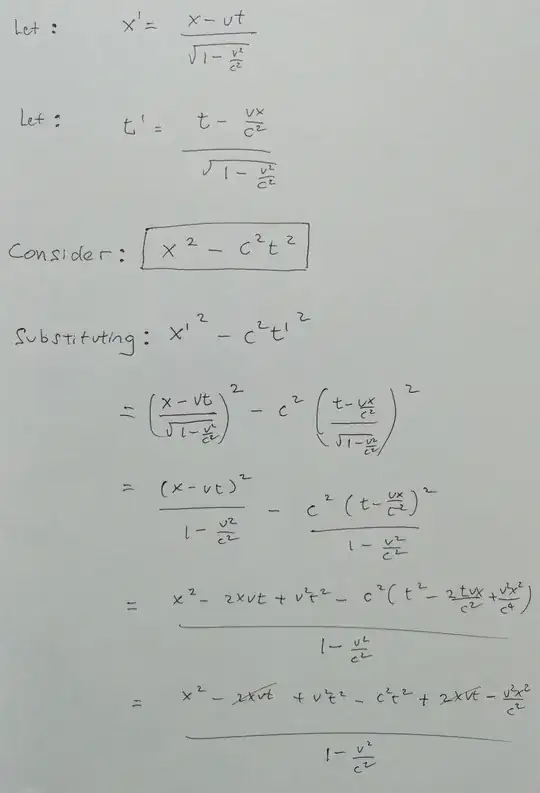 Let : x' = (x - vt) / √(1 - v²/c²)
Let : t' = (t - vx/c²) / √(1 - v²/c²)
Consider : x² - c²t²
Substituting : x'² - c²t'²
= ((x - vt) / √(1 - v²/c²))² - c² ((t - vx/c²) / √(1 - v²/c²))²
= (x - vt)² / (1 - v²/c²) - c² (t - vx/c²)² / (1 - v²/c²)
= (x² - 2xvt + v²t² - c²(t² - 2tvx/c² + v²x²/c⁴)) / (1 - v²/c²)
= (x² - 2xvt + v²t² - c²t² + 2xvt - v²x²/c²) / (1 - v²/c²)